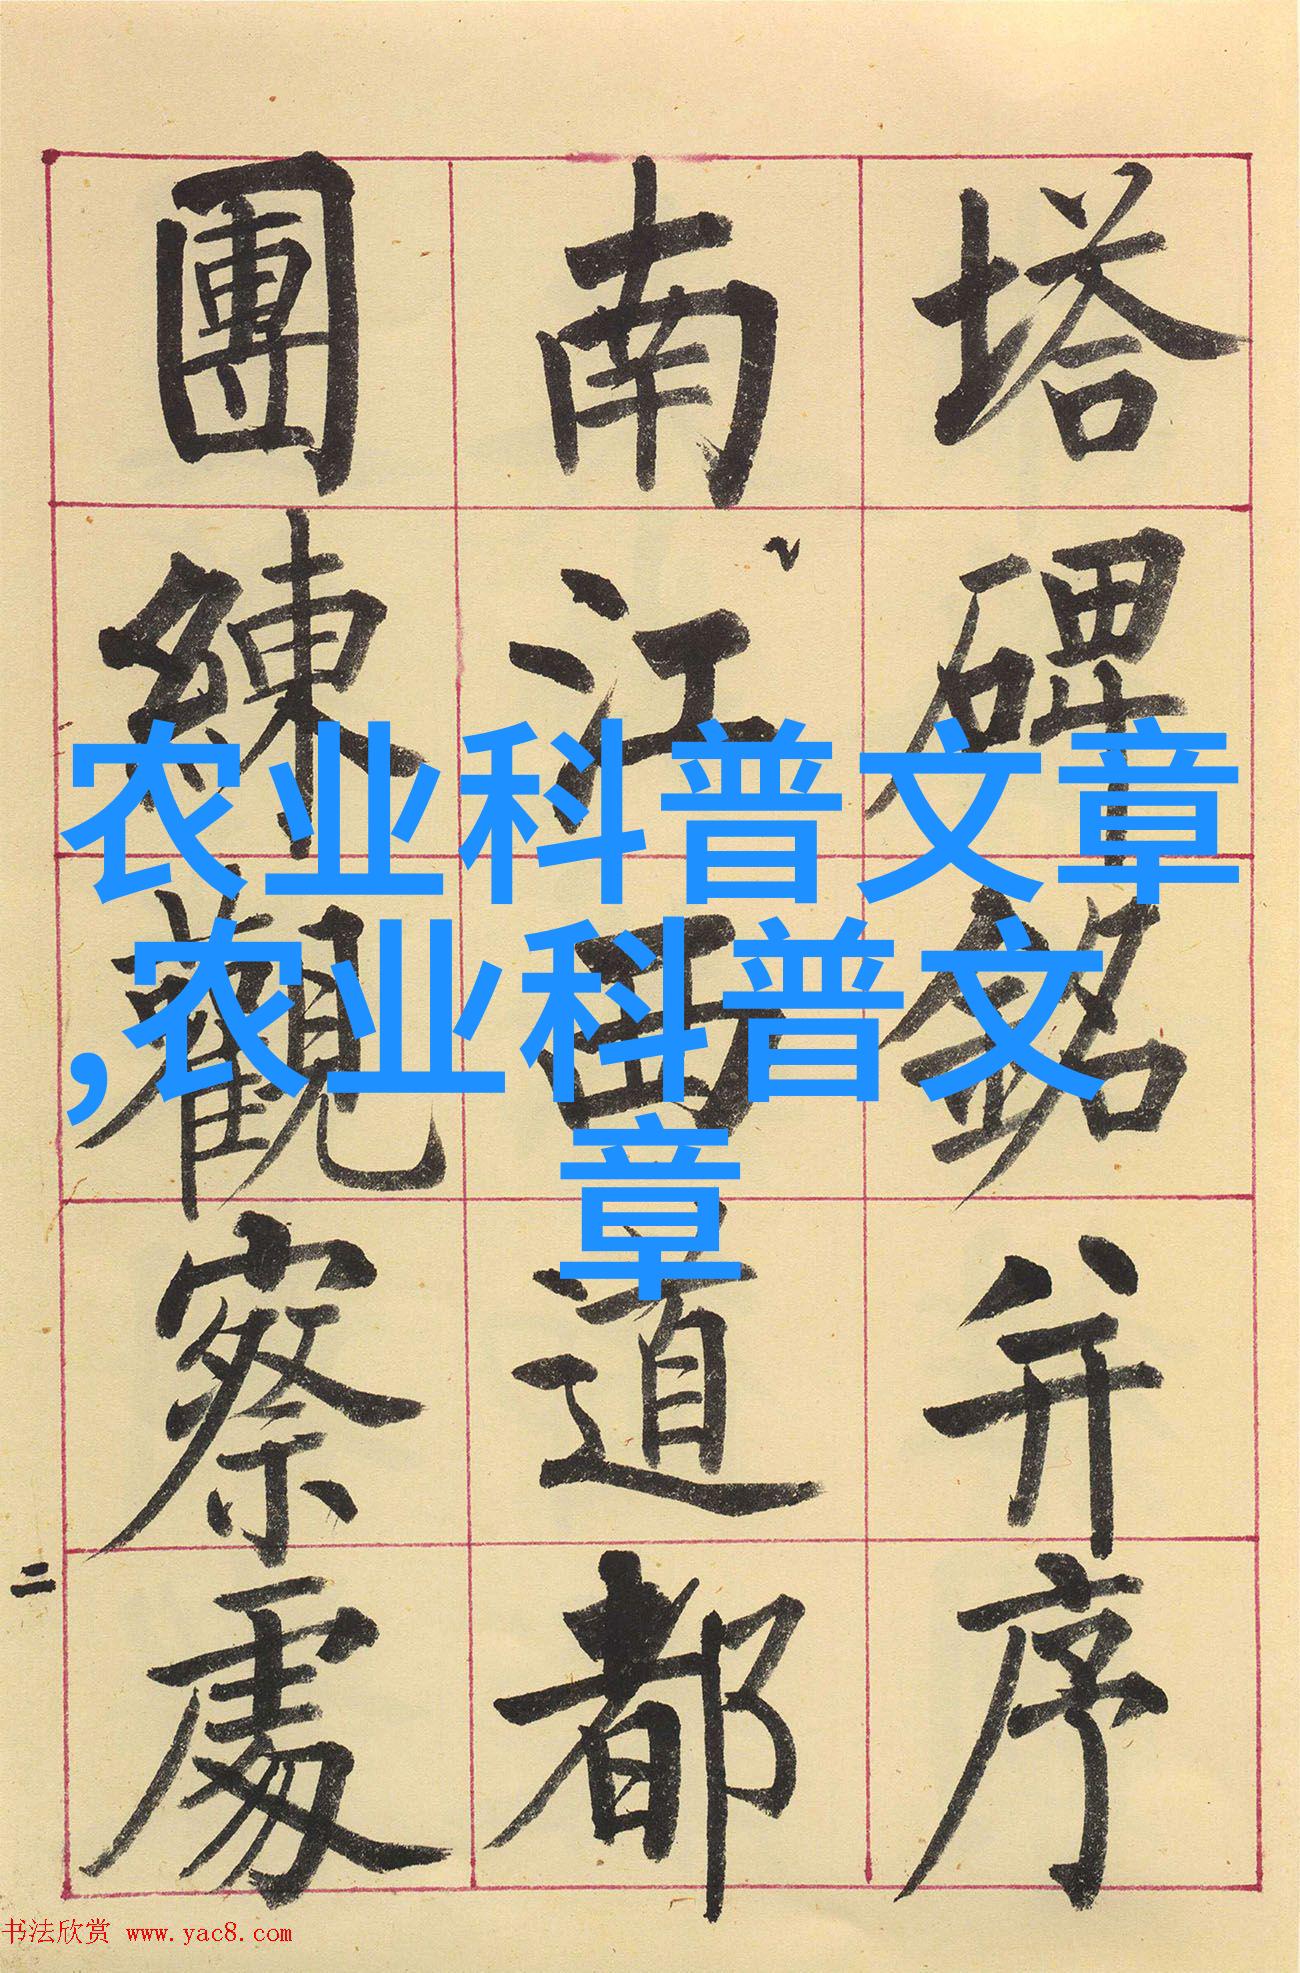 塔碑銘并序
南江西道都
團練觀察處
二
农业科普文章
,农业科普文
章
书法欣赏 www.yac8.com